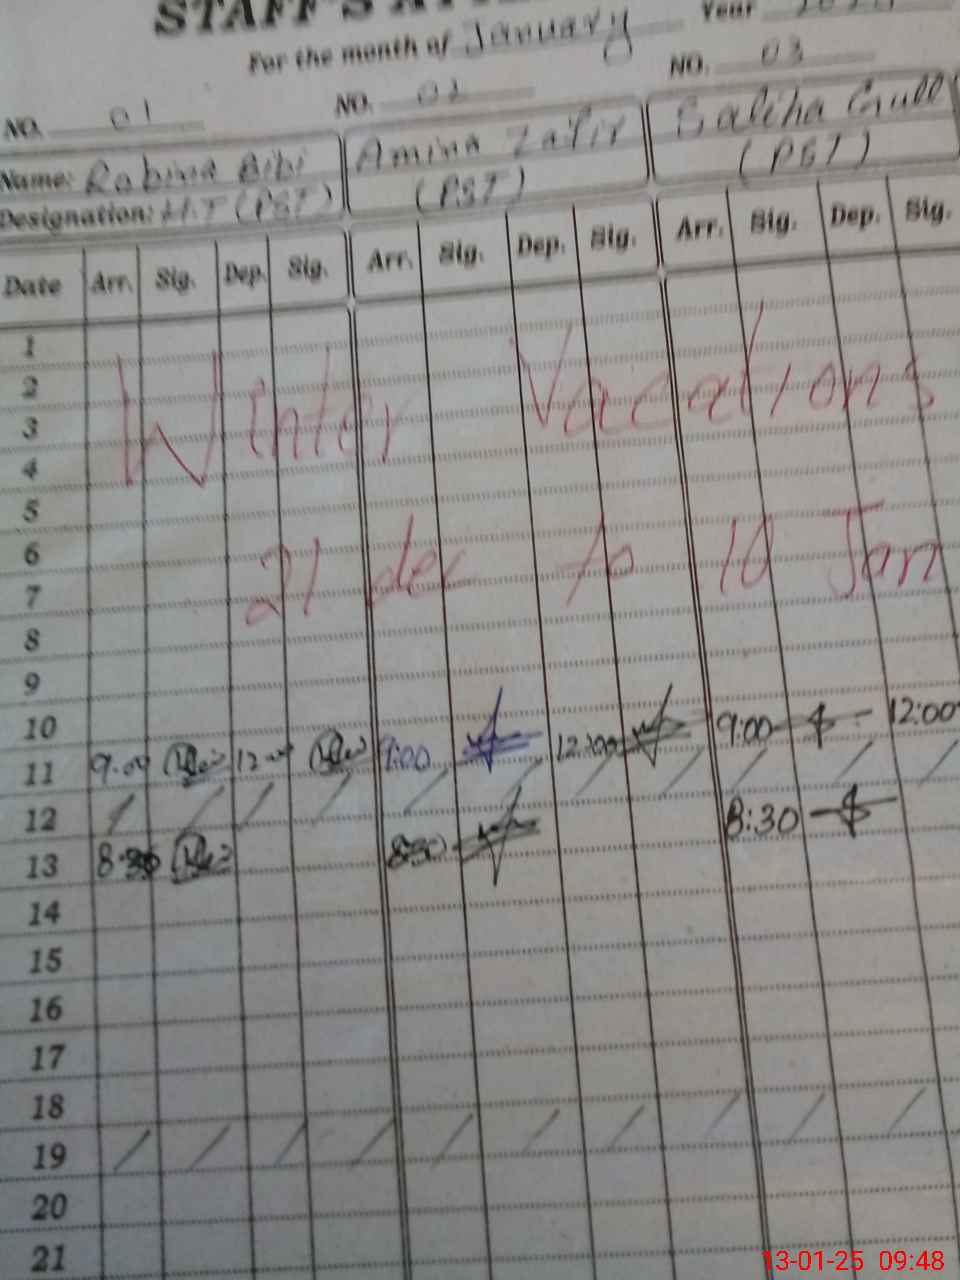 STAFF'S
For the month of January Year
NO. 01 NO. 02 NO. 03
Name: Robina Bibi Amina Zafir Saliha Gull
Designation: H.T (PST) (PST) (PST)
Date Arr. Sig. Dep. Sig. Arr. Sig. Dep. Sig. Arr. Sig. Dep. Sig.
1
2
Winter Vacations
3
4
5
6
21 dec to 10 Jan
7
8
9
10
11 9:00 12:00 9:00 12:00 9:00 12:00
12
13 8:30 8:30 8:30
14
15
16
17
18
19
20
21
13-01-25 09:48